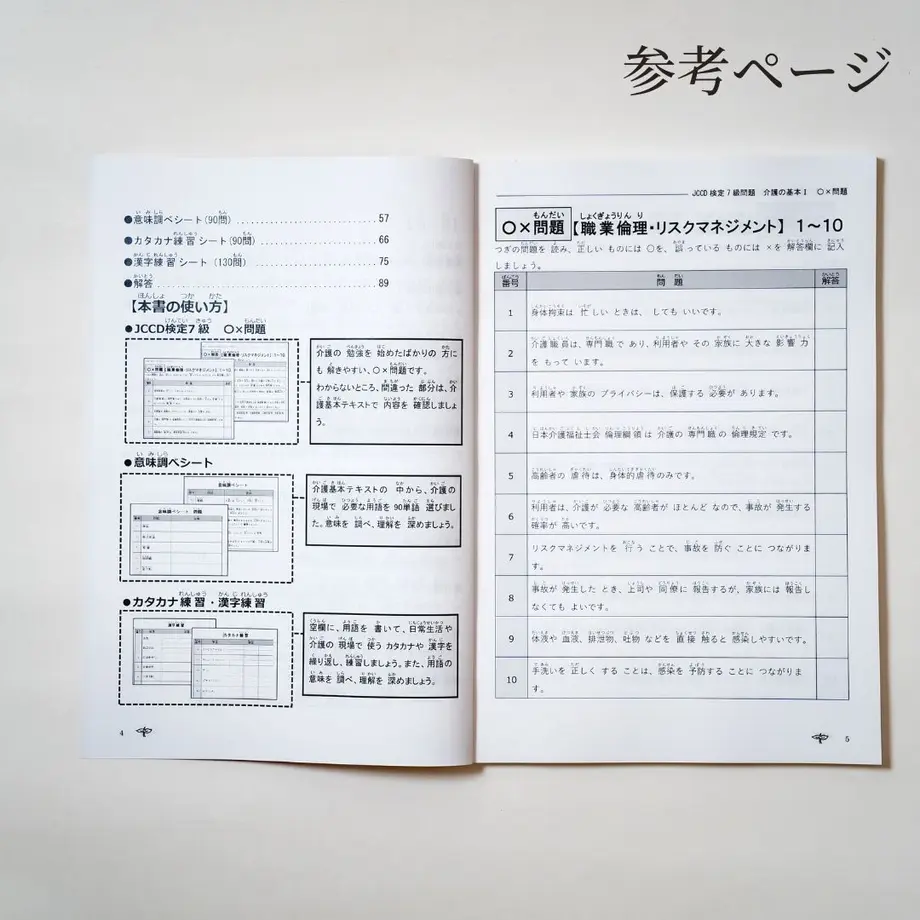 参考ページ
●意味調べシート(90問) 57
●カタカナ練習シート(90問) 66
●漢字練習シート(130問) 75
●解答 89
【本書の使い方】
●JCCD検定7級 ○×問題
介護の 勉強を 始めたばかりの 方に
も 解きやすい、○×問題です。
わからないところ、間違った 部分は、介
護基本テキストで 内容を 確認しましょ
う。
●意味調べシート
介護基本テキストの 中から、介護の
現場で 必要な用語を 90単語 選びまし
た。意味を 調べ、理解を 深めましょう。
●カタカナ練習・漢字練習
空欄に、用語を 書いて、日常生活や
介護の 現場で 使う カタカナや 漢字を
繰り返し、練習しましょう。また、用語の
意味を 調べ、理解を 深めましょう。
4
JCCD検定7級問題 介護の基本Ⅰ ○×問題
○×問題【職業倫理・リスクマネジメント】 1~10
つぎの問題を 読み、正しい ものには ○を、誤っている ものには ×を 解答欄に 記入
しましょう。
番号 問題 解答
1 身体拘束は 忙しい ときは、しても いいです。
2 介護職員は、専門職で あり、利用者や その 家族に 大きな 影響力
を もって います。
3 利用者や 家族の プライバシーは、保護する 必要が あります。
4 日本介護福祉士会 倫理綱領は 介護の 専門職の 倫理規定 です。
5 高齢者の 虐待は、身体的虐待のみです。
6 利用者は、介護が 必要な 高齢者が ほとんど なので、事故が 発生する
確率が 高いです。
7 リスクマネジメントを 行う ことで、事故を 防ぐ ことに つながりま
す。
8 事故が 発生した とき、上司や 同僚に 報告するが、家族には 報告し
なくても よいです。
9 体液や 血液、排泄物、吐物 などを 直接 触ると 感染しやすいです。
10 手洗いを 正しく する ことは、感染を 予防する ことに つながりま
す。
5